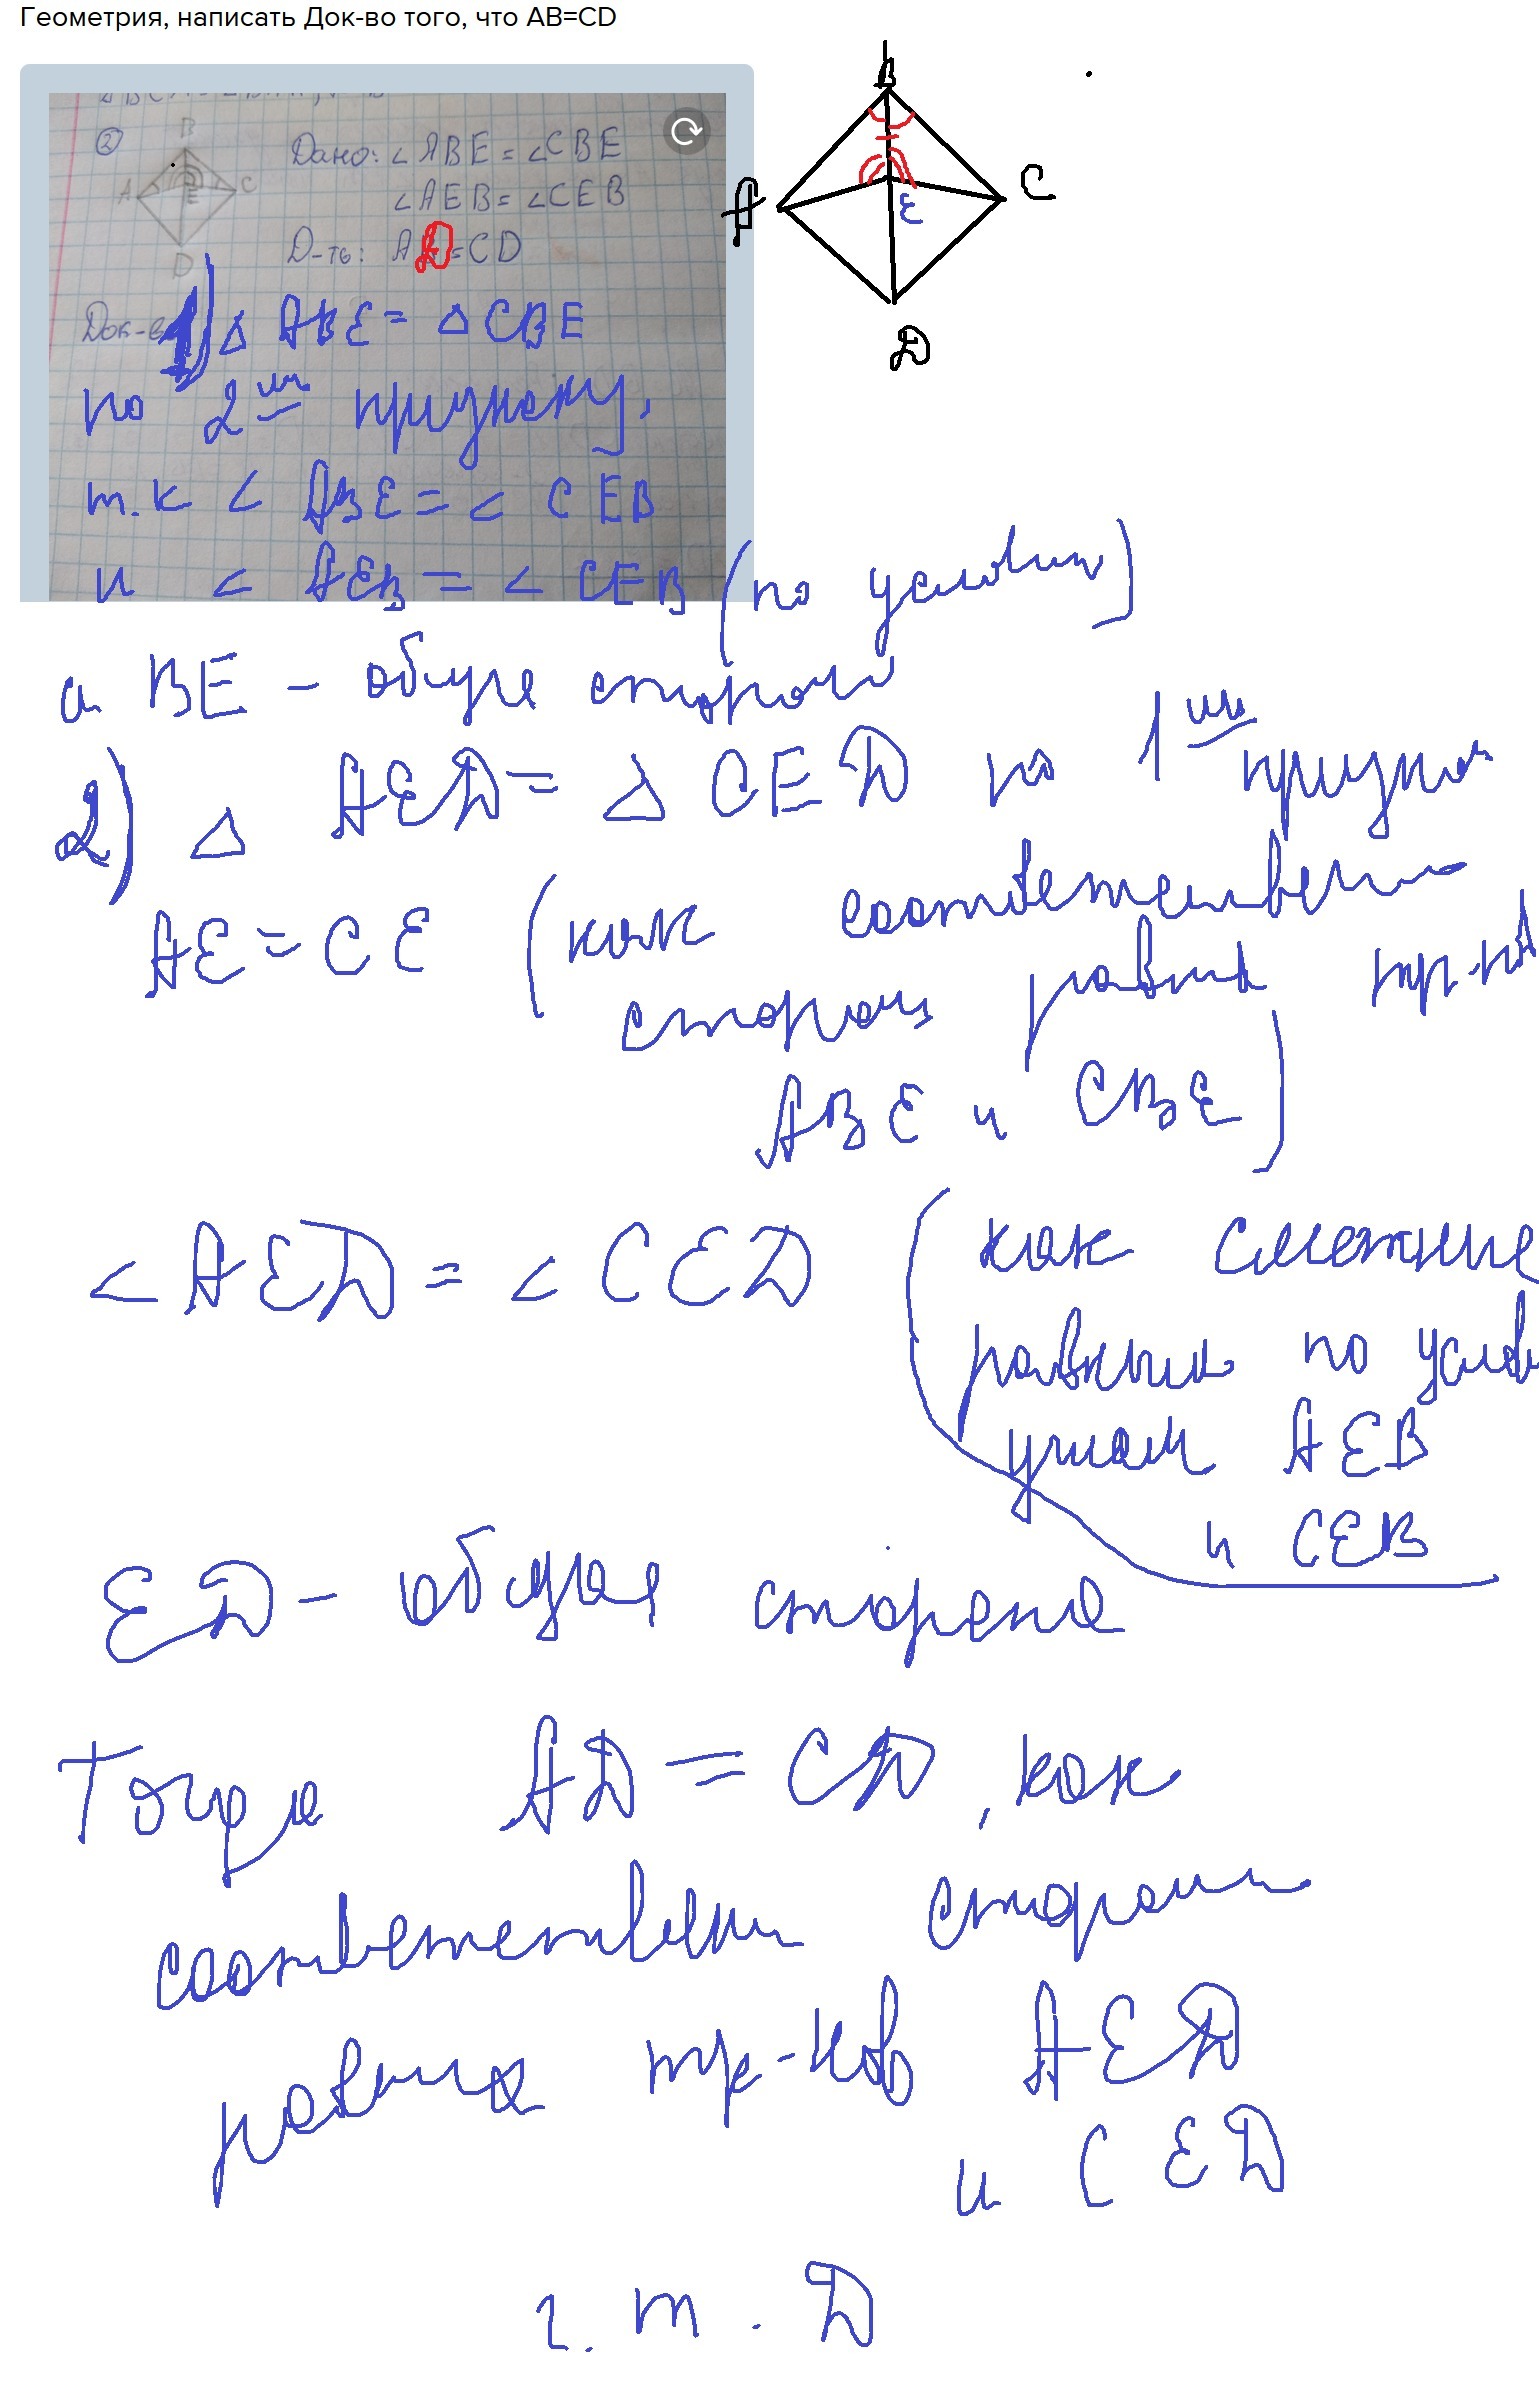 Геометрия, написать Док-во того, что AB=CD
B
②
Дано: ∠ABE = ∠CBE
A C
E
∠AEB = ∠CEB
D
Д-ть: AD = CD
B
A C
E
D
Док-в
1) △ ABE = △ CBE
по 2 ому признаку,
т.к ∠ ABE = ∠ CEB
и ∠ AEB = ∠ CEB (по условию)
а BE - общая сторона
2) △ AED = △ CED по 1 ому признаку
AE = CE (как соответственные
стороны равных тр-ков
ABE и CBE)
∠ AED = ∠ CED (как смежные
равным по услов
углам AEB
и CEB
ED - общая сторона
Тогда AD = CD, как
соответственные стороны
равных тр-ков AED
и CED
ч. т. Д